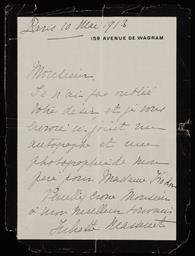 Paris 10 Mai 1913
159 AVENUE DE WAGRAM
Monsieur,
Je n'ai pas oublié
votre désir et je vous
envoie ci-joint un
autographe et une
photographie de mon
père pour Madame
Veuillez croire Monsieur
à mon meilleur souvenir
Juliette Massenet